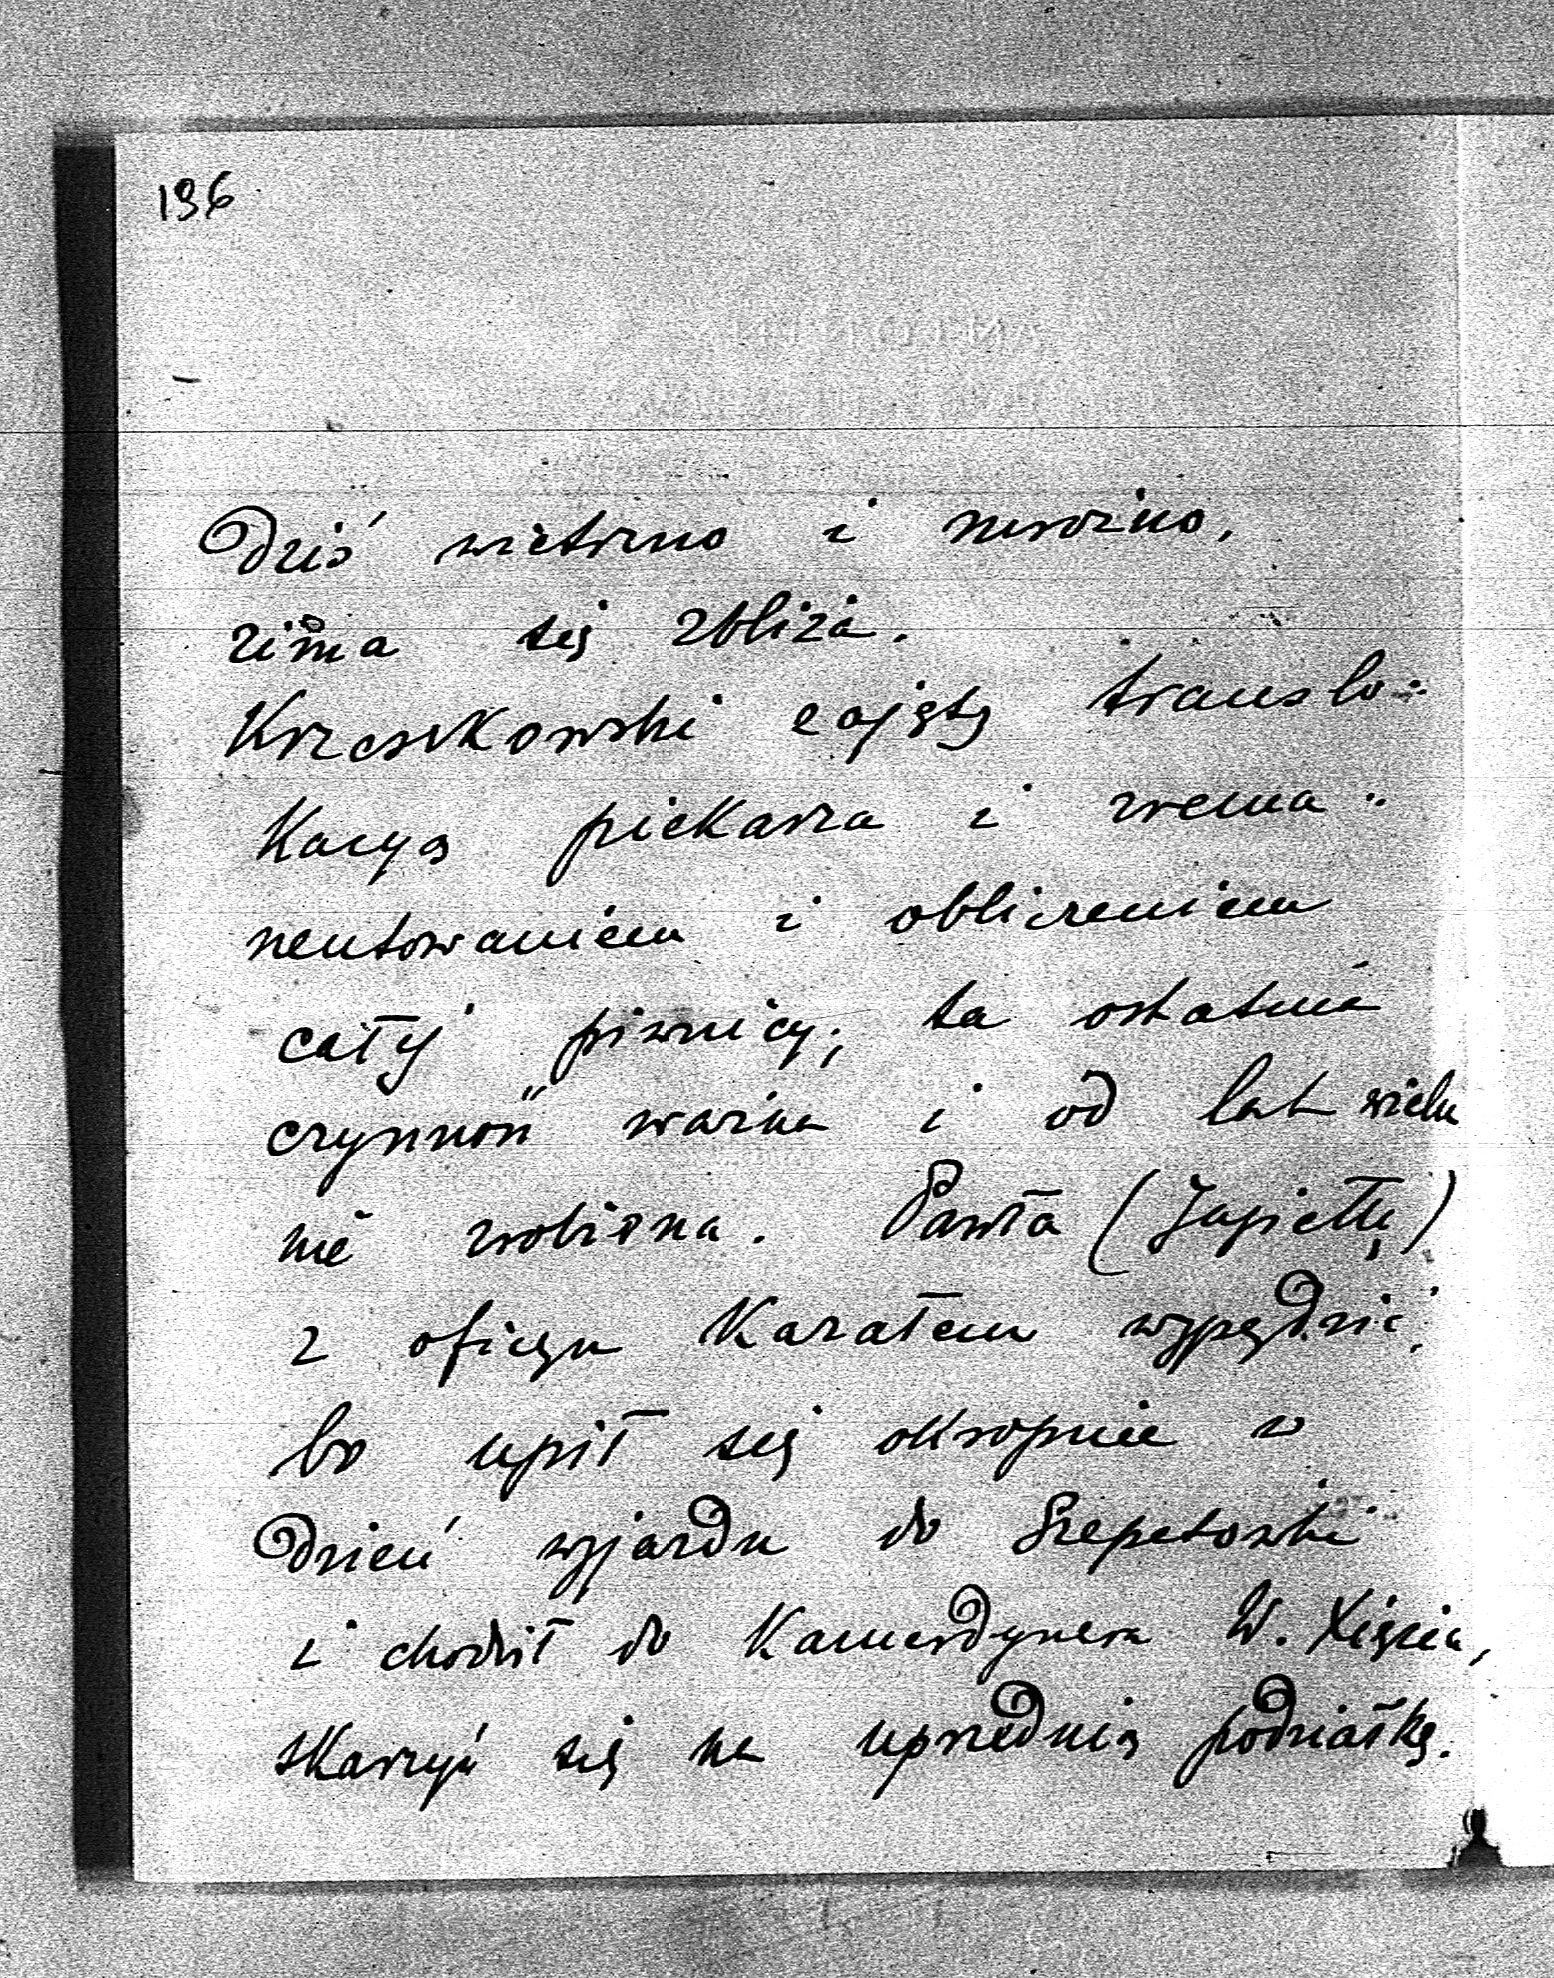 196
Dziś wietrzno i mroźno,
zima się zbliża.
Krzeczkowski zajęty translo-
kacyą piekarza i rema-
nentowaniem i obliczeniem
całéj piwnicy; ta ostatnia
czynność ważna i od lat wielu
nie robiona. Pawła (Jupiettę)
z oficyn kazałem wypędzić,
bo upił się okropnie w
dzień wyjazdu do Szepetówki
i chodził do Kamerdynera W. Xięcia,
skarżyć się na uprzednią podziałkę.